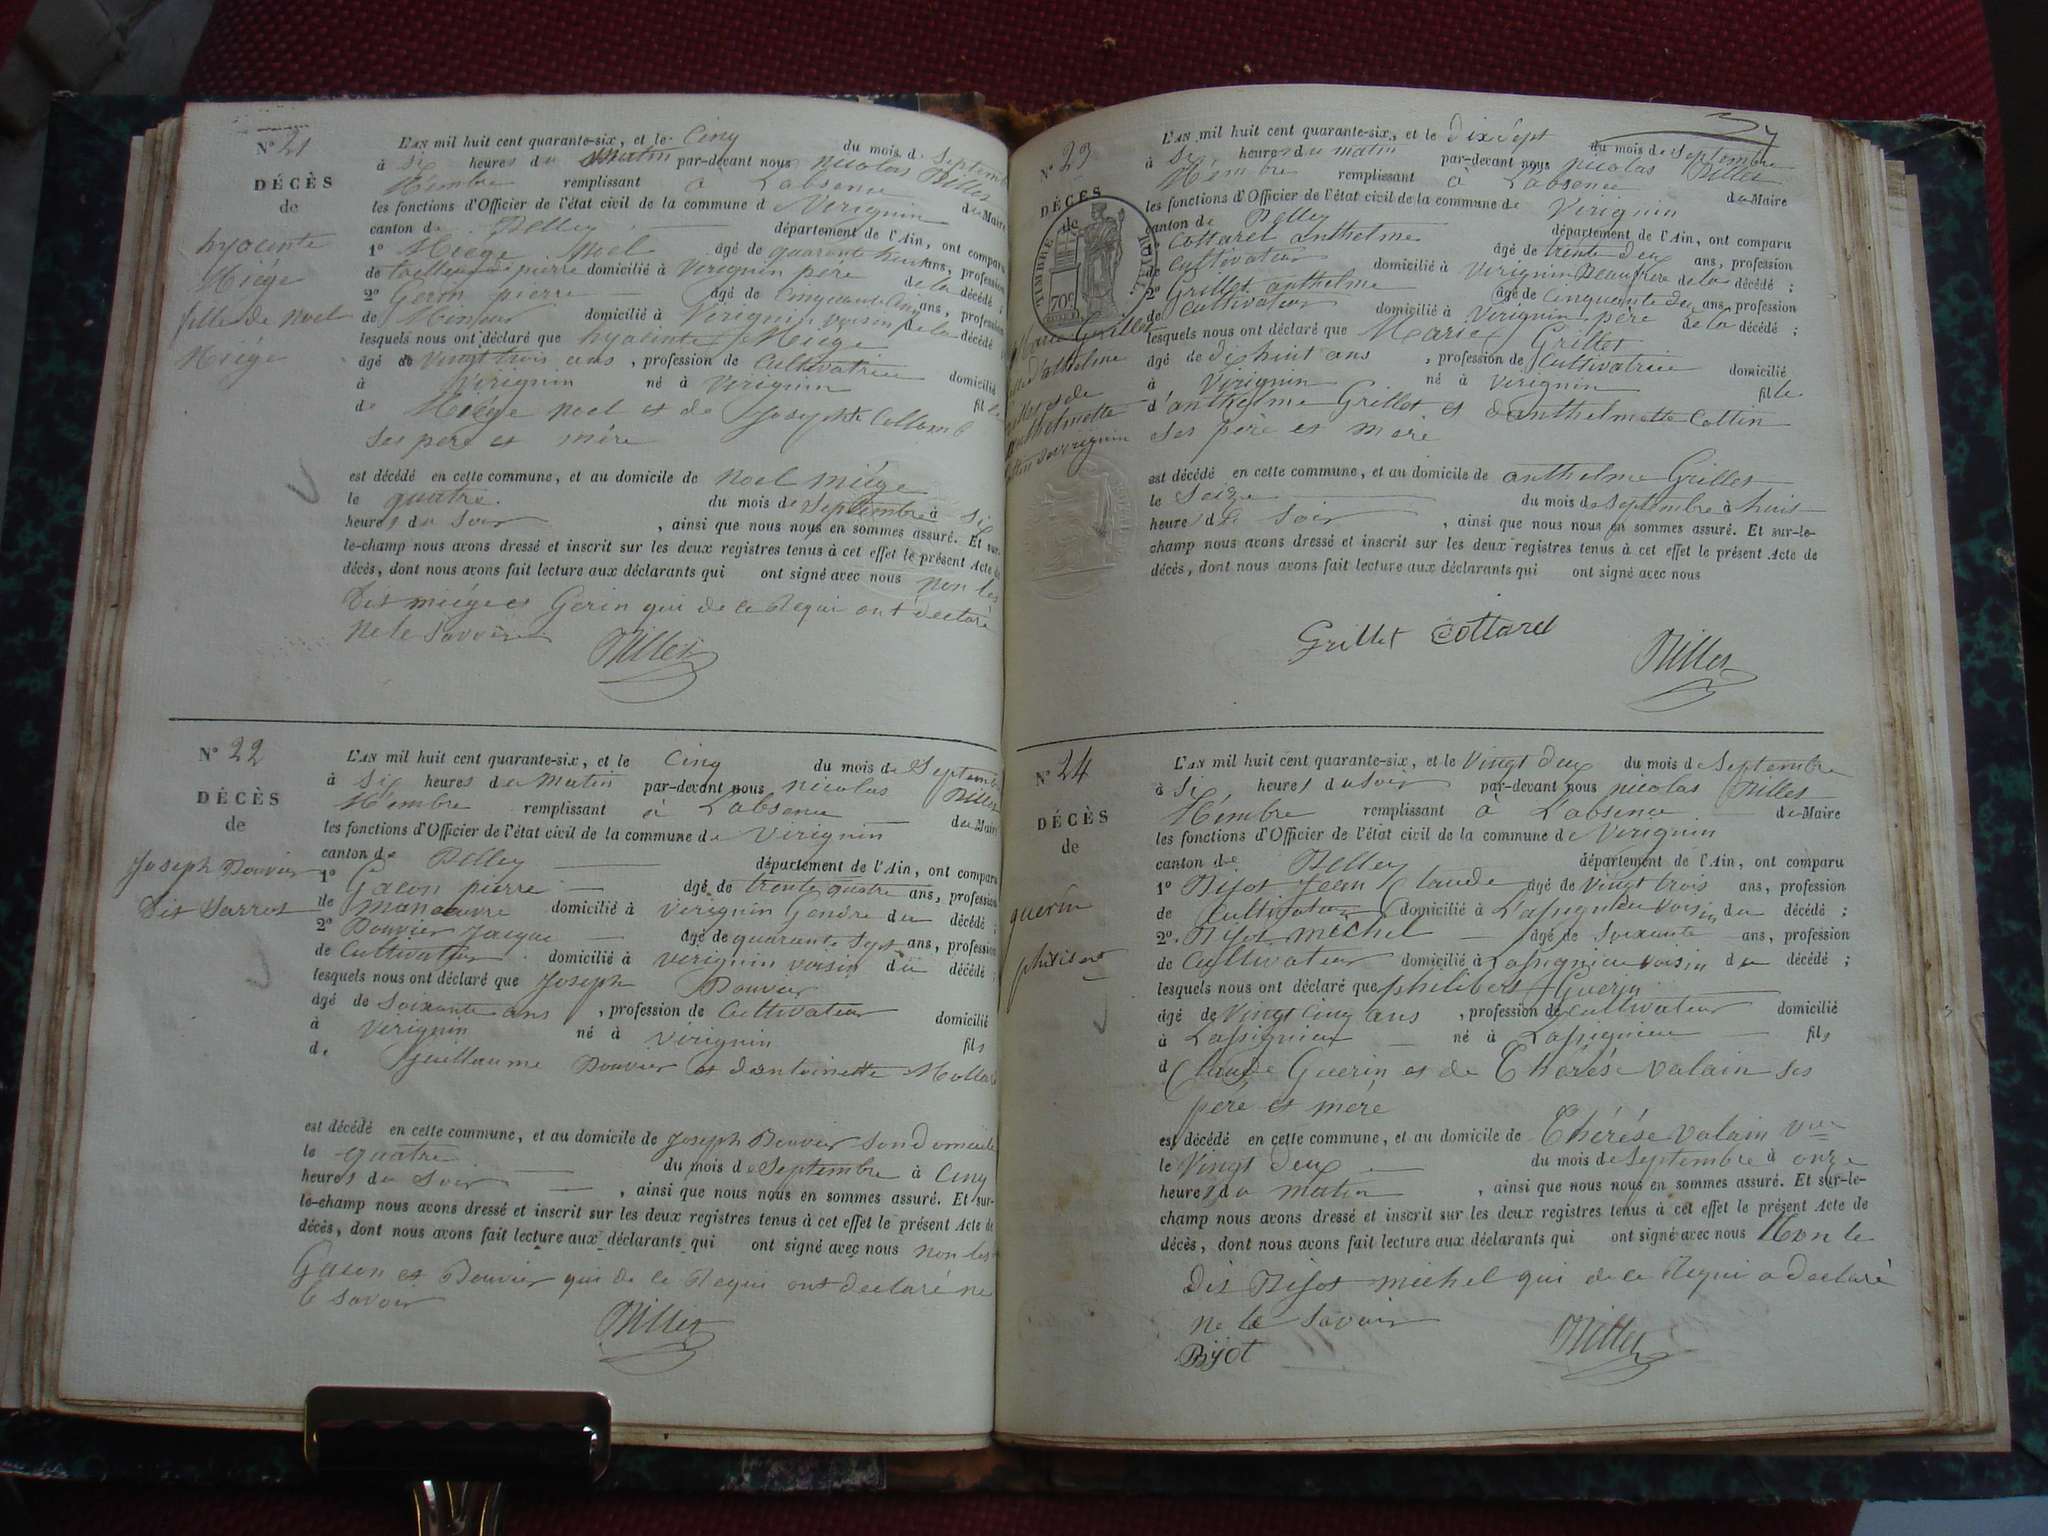 N° 21
DÉCÈS
de
hyacinte
Miége
fille de Noel
Miége
L'AN mil huit cent quarante-six, et le Cinq du mois de Septembre
à six heures du matin par-devant nous nicolas Billet
Membre remplissant à L'absence du Maire
les fonctions d'Officier de l'état civil de la commune de Virignin
canton de Belley département de l'Ain, ont comparu
1° Miege Noel âgé de quarante huit ans, profession
de pierre domicilié à Virignin père de la décédé ;
2° Gerin pierre âgé de ans, profession
de domicilié à Virignin voisin de la décédé
lesquels nous ont déclaré que hyacinte Miége
âgé de vingt trois ans, profession de Cultivatrice domicilié
à Virignin né à Virignin fille
de Miége noel et de Josephte Collomb
ses pere et mére
est décédé en cette commune, et au domicile de Noel miége
le quatre du mois de Septembre à six
heures du Soir, ainsi que nous nous en sommes assuré. Et sur-
le-champ nous avons dressé et inscrit sur les deux registres tenus à cet effet le présent Acte de
décès, dont nous avons fait lecture aux déclarants qui ont signé avec nous non les
dits miége et Gerin qui de ce Requi ont déclaré
ne le Savoir
Billet
N° 22
DÉCÈS
de
Joseph Bouvier
Dit Sarret
L'AN mil huit cent quarante-six, et le Cinq du mois de Septembre
à six heures du Matin par-devant nous nicolas Billet
Membre remplissant à L'absence du Maire
les fonctions d'Officier de l'état civil de la commune de Virignin
canton de Belley département de l'Ain, ont comparu
1° Gacon pierre âgé de trente quatre ans, profession
de manoeuvre domicilié à Virignin Gendre du décédé ;
2° Bouvier Jacque âgé de quarante Sept ans, profession
de Cultivateur domicilié à virignin voisin du décédé ;
lesquels nous ont déclaré que Joseph Bouvier
âgé de Soixante ans, profession de Cultivateur domicilié
à Virignin né à Virignin fils
de Guillaume Bouvier et dantoinette Mollard
est décédé en cette commune, et au domicile de Joseph Bouvier Son domicile
le quatre du mois de Septembre à Cinq
heures du Soir, ainsi que nous nous en sommes assuré. Et sur-
le-champ nous avons dressé et inscrit sur les deux registres tenus à cet effet le présent Acte de
décès, dont nous avons fait lecture aux déclarants qui ont signé avec nous non les
Gacon et Bouvier qui de ce Requi ont declaré ne
le savoir
Billet
N° 23
DÉCÈS
de
TIMBRE ROYAL
70c
Marie Grillet
fille d'athelme
Grillet et de
anthelmette
Cottin de virignin
L'AN mil huit cent quarante-six, et le dix Sept du mois de Septembre
à Si heures du matin par-devant nous nicolas Billet
Membre remplissant à L'absence du Maire
les fonctions d'Officier de l'état civil de la commune de Virignin
canton de Belley département de l'Ain, ont comparu
Cottarel anthelme âgé de trente deux ans, profession
de Cultivateur domicilié à Virignin Beaufrère de la décédé ;
2° Grillet anthelme âgé de Cinquante deux ans, profession
de Cultivateur domicilié à Virignin père de la décédé ;
lesquels nous ont déclaré que Marie Grillet
âgé de dix huit ans, profession de Cultivatrice domicilié
à Virignin né à Virignin fille
d'anthelme Grillet et d'anthelmette Cottin
Ses père et mere
est décédé en cette commune, et au domicile de anthelme Grillet
le Seize du mois de Septembre à huit
heures du Soir, ainsi que nous nous en sommes assuré. Et sur-le-
champ nous avons dressé et inscrit sur les deux registres tenus à cet effet le présent Acte de
décès, dont nous avons fait lecture aux déclarants qui ont signé avec nous
Grillet Cottarel
Billet
N° 24
DÉCÈS
de
guerin
philibert
L'AN mil huit cent quarante-six, et le Vingt deux du mois de Septembre
à Si heures du Soir par-devant nous nicolas Billet
Membre remplissant à L'absence du Maire
les fonctions d'Officier de l'état civil de la commune de Virignin
canton de Belley département de l'Ain, ont comparu
1° Bijot Jean Claude âgé de Vingt trois ans, profession
de Cultivateur domicilié à Lassignieu voisin du décédé ;
2° Bijot michel âgé de soixante ans, profession
de Cultivateur domicilié à Lassignieu voisin du décédé ;
lesquels nous ont déclaré que philibert Guerin
âgé de Vingt Cinq ans, profession de Cultivateur domicilié
à Lassignieu né à Lassignieu fils
d Claude Guerin et de Thérése Valain Ses
pere et mére
est décédé en cette commune, et au domicile de Thérése Valain Vve
le Vingt deux du mois de Septembre à onze
heures du matin, ainsi que nous nous en sommes assuré. Et sur-le-
champ nous avons dressé et inscrit sur les deux registres tenus à cet effet le présent Acte de
décès, dont nous avons fait lecture aux déclarants qui ont signé avec nous Non le
dit Bijot michel qui de ce Requi a declaré
ne le Savoir
Bijot
Billet